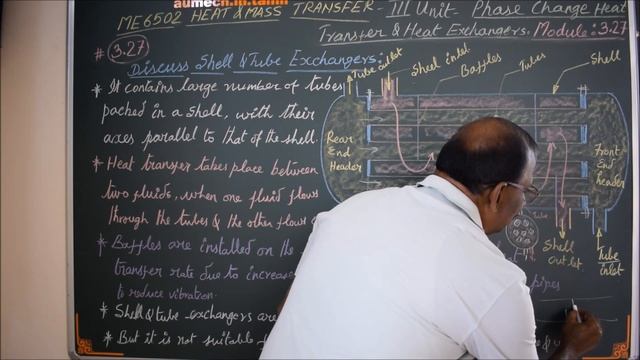 aumech.in.tamil
ME6502 HEAT & MASS TRANSFER - III Unit - Phase Change Heat
Transfer & Heat Exchangers. Module: 3.27
# 3.27
Discuss Shell & Tube Exchangers:
* It contains large number of tubes
packed in a shell, with their
axes parallel to that of the shell.
* Heat transfer takes place between
two fluids, when one fluid flows
through the tubes & the other flows
* Baffles are installed on the
transfer rate due to increase
to reduce vibration.
* Shell & tube exchangers are
* But it is not suitable
Tube outlet
Sheel inlet
Baffles
Tubes
Shell
Rear
End
Header
Front
End
header
Tube
Shell
outlet
Tube
inlet
pipes